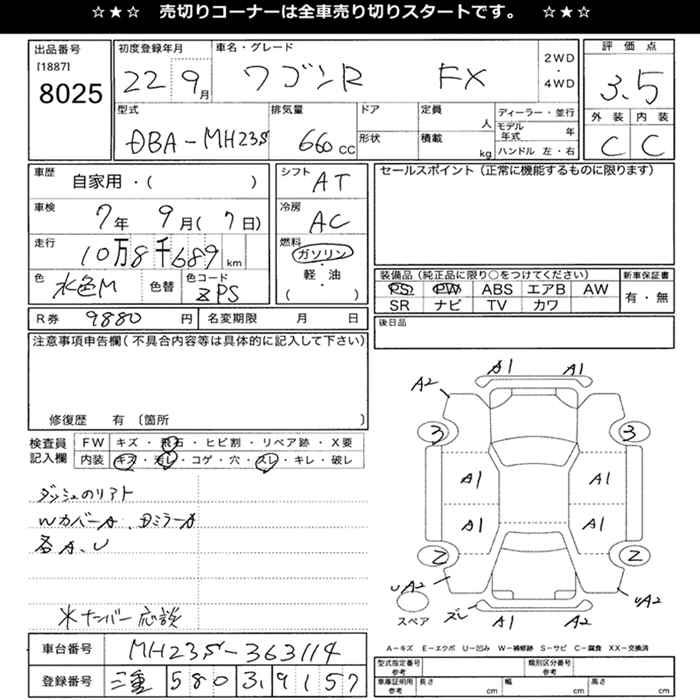 ☆★☆ 売切りコーナーは全車売り切りスタートです。 ☆★☆
出品番号
[1887]
8025
初度登録年月
22 9月
車名・グレード
ワゴンR FX
2WD
・
4WD
評価点
3.5
外装 内装
C C
型式
DBA-MH23S
排気量
660 CC
ドア
形状
定員
人
積載
kg
ディーラー・並行
モデル年式 年
ハンドル 左・右
車歴
自家用・( )
車検
7年 9月( 7日)
走行
10万8千689 km
色
水色M
色替
色コード
ZPS
シフト AT
冷房 AC
燃料
ガソリン
・
軽・油
( )
セールスポイント(正常に機能するものに限ります)
装備品(純正品に限り○をつけてください)
PS PW ABS エアB AW
SR ナビ TV カワ
新車保証書
有・無
R券 9880 円
名変期限 月 日
後日品
注意事項申告欄(不具合内容等は具体的に記入して下さい)
修復歴 有 〔箇所 〕
検査員
記入欄
FW キズ・飛石・ヒビ割・リペア跡・X要
内装 キズ・汚レ・コゲ・穴・スレ・キレ・破レ
ダッシュのリアト
WカバーA、DミラーA
各A、U
※ナンバー応談
車台番号 MH23S-363114
登録番号 三重 580 ス 9157
A1 A1
A2
3 3
A1 A1
A1 A1
2 2
UA2 UA2
スペア
ズレ A1 A2
A-キズ E-エクボ U-凹み W-補修跡 S-サビ C-腐食 XX-交換済
型式指定番号
参考
類別区分番号
参考
車庫証明用
参考
長さ cm
幅 cm
高さ cm